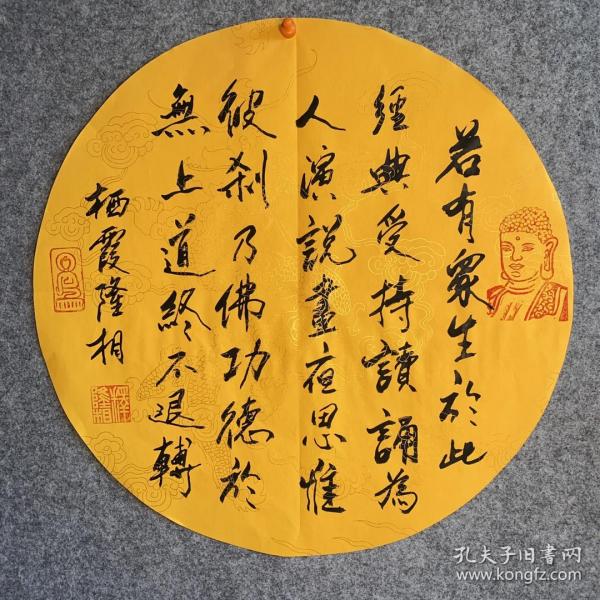 若有眾生於此
經典受持讀誦為
人演說晝夜思惟
彼刹乃佛功德於
無上道終不退轉
栖霞隆相
隆相
孔夫子旧書网
www.kongfz.com